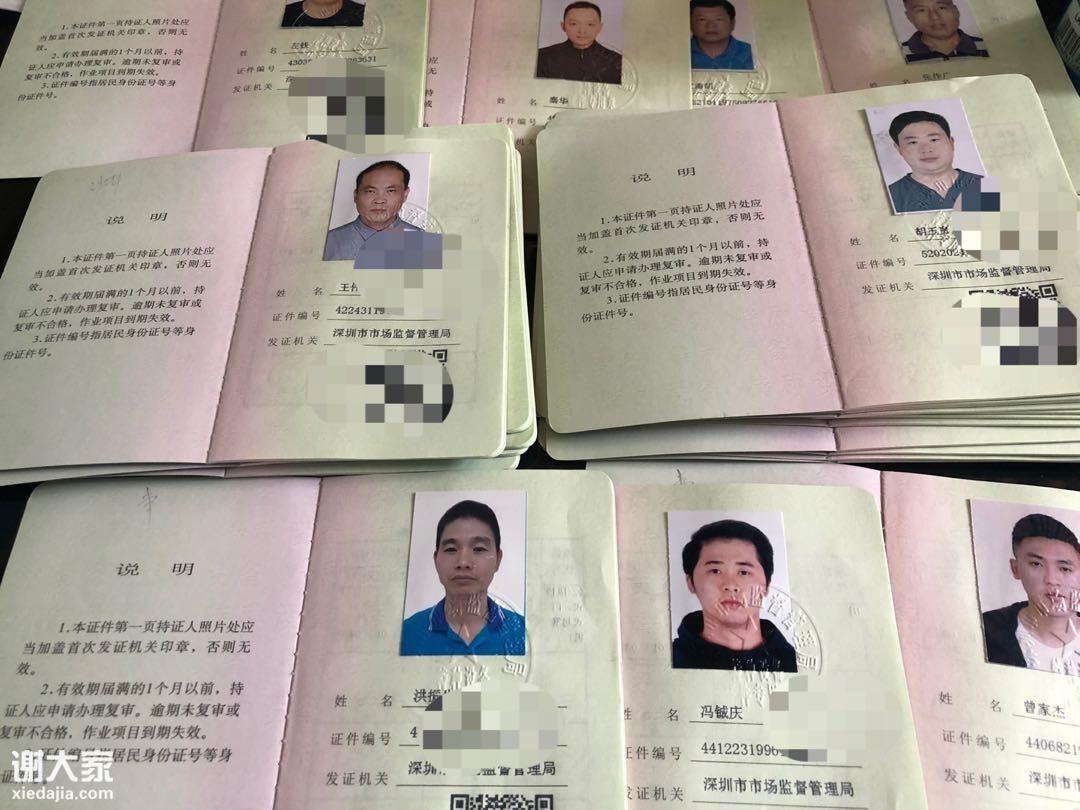 1.本证件第一页持证人照片处应
当加盖首次发证机关印章，否则无
效。
2.有效期届满的1个月以前，持
证人应申请办理复审。逾期未复审或
复审不合格，作业项目到期失效。
3.证件编号指居民身份证号等身
份证件号。
姓 名
证件编号
发证机关
姓 名 秦华
证件编号
发证机关
说 明
1.本证件第一页持证人照片处应
当加盖首次发证机关印章，否则无
效。
2.有效期届满的1个月以前，持
证人应申请办理复审。逾期未复审或
复审不合格，作业项目到期失效。
3.证件编号指居民身份证号等身
份证件号。
姓 名 王
证件编号 42243119
发证机关 深圳市市场监督管理局
说 明
1.本证件第一页持证人照片处应
当加盖首次发证机关印章，否则无
效。
2.有效期届满的1个月以前，持
证人应申请办理复审。逾期未复审或
复审不合格，作业项目到期失效。
3.证件编号指居民身份证号等身
份证件号。
姓 名 胡玉
证件编号 520202
发证机关 深圳市市场监督管理局
说 明
1.本证件第一页持证人照片处应
当加盖首次发证机关印章，否则无
效。
2.有效期届满的1个月以前，持
证人应申请办理复审。逾期未复审或
复审不合格，作业项目到期失效。
证件编号指居民身份证号等身
份证件号。
姓 名 洪振
证件编号 4
发证机关 深圳市市场监督管理局
姓 名 冯铖庆
证件编号 441223199
发证机关 深圳市市场监督管理局
姓 名 曾家杰
证件编号 44068219
发证机关 深圳市市场
谢大家
xiedajia.com